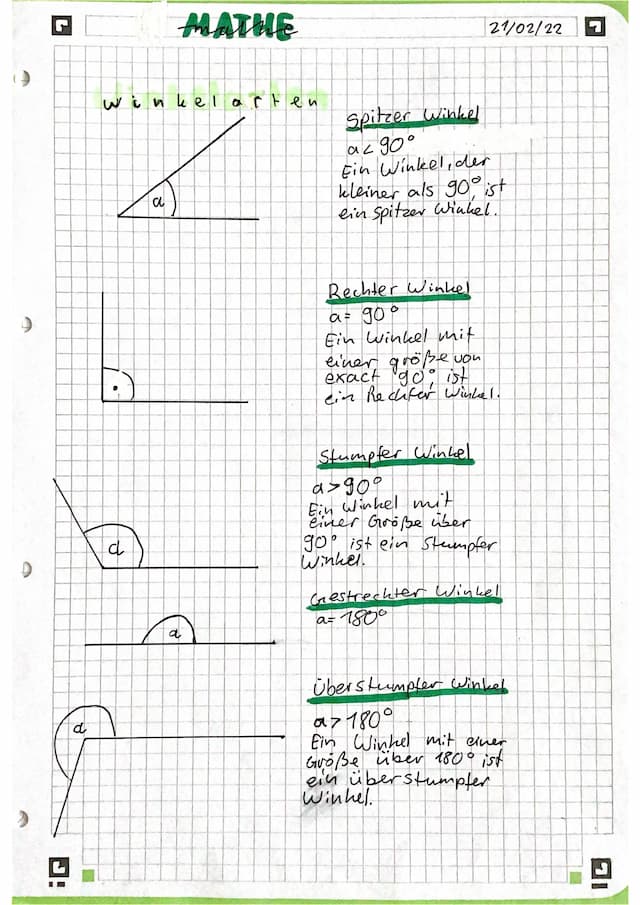 MATHE
21/02/22
Winkelarten
Spitzer Winkel
a < 90°
Ein Winkel, der
kleiner als 90°, ist
ein Spitzer Winkel.
α
Rechter Winkel
a = 90°
Ein Winkel mit
einer größe von
exact 90°, ist
ein Rechter Winkel.
Stumpfer Winkel
a > 90°
Ein Winkel mit
einer Größe über
90° ist ein Stumpfer
Winkel.
α
Gestreckter Winkel
a = 180°
α
Überstumpfer Winkel
a > 180°
Ein Winkel mit einer
Größe über 180° ist
ein überstumpfer
Winkel.
α